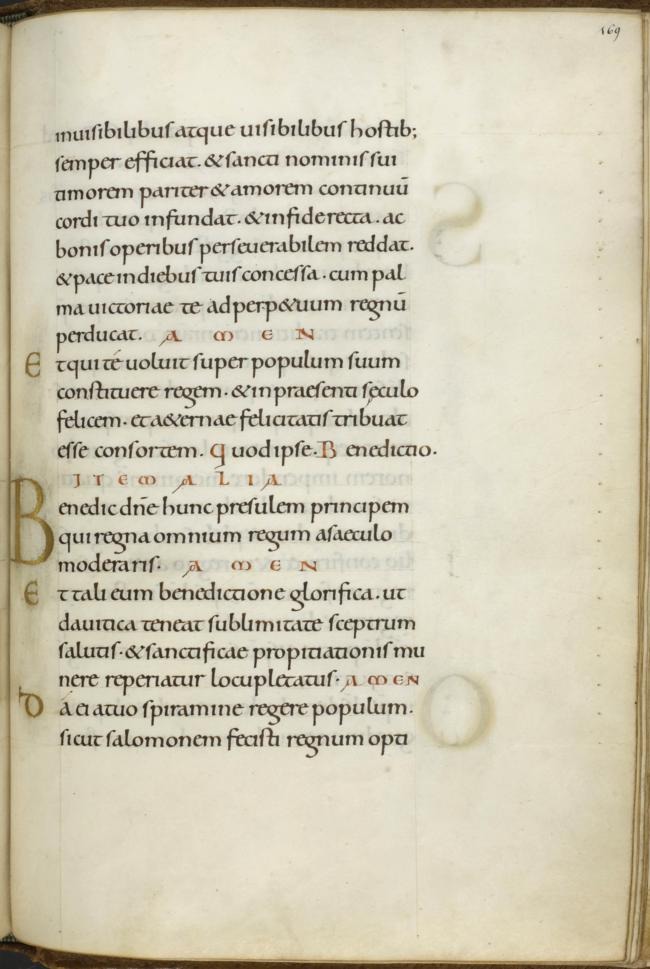 169
inuisibilibus atque uisibilibus hostib;
semper efficiat. & sancti nominis sui
timorem pariter & amorem continuū
cordi tuo infundat. & in fide recta. ac
bonis operibus perseuerabilem reddat.
& pace in diebus tuis concessa. cum pal
ma uictoriae te ad perp&uum regnū
perducat. AMEN
Et qui té uoluit super populum suum
constituere regem. & in praesenti sęculo
felicem. et a&ernae felicitatis tribuat
esse consortem. Quod ipse. Benedictio.
ITEM ALIA
Benedic dn̄e hunc presulem principem
qui regna omnium regum a saeculo
moderaris. AMEN
Et tali eum benedictione glorifica. ut
dauitica teneat sublimitate sceptrum
salutis. & sanctificae propitiationis mu
nere reperiatur locupletatus. AMEN
Dá ei a tuo spiramine regere populum.
sicut salomonem fecisti regnum opti